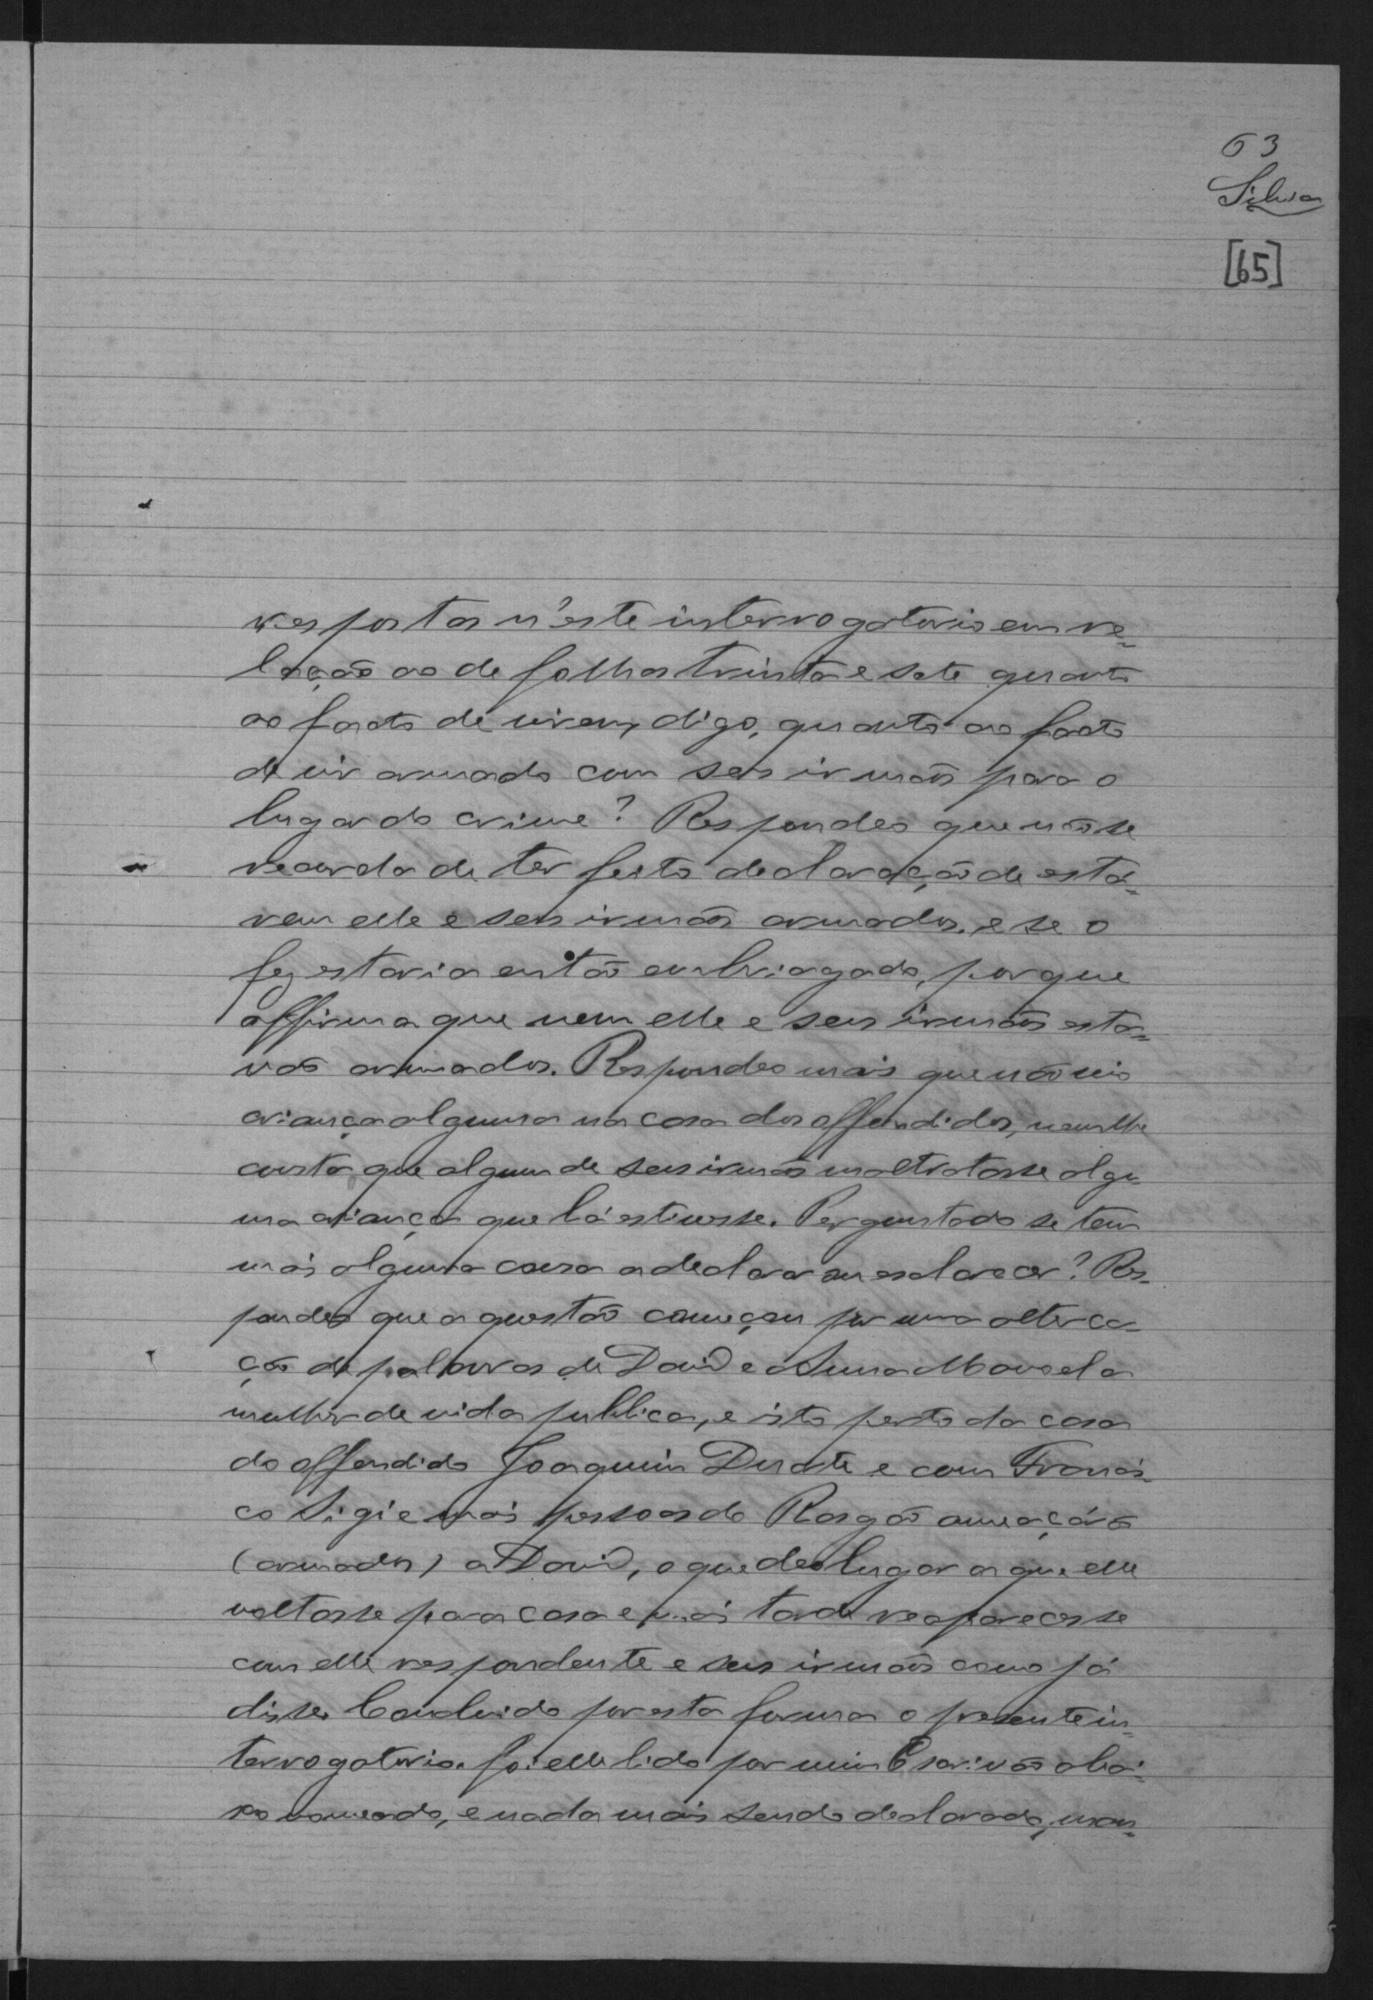 63
Silva
[65]
respostas n'este interrogatorio em re-
lação ao de folhas trinta e sete quanto
ao facto de virem, digo, quanto ao facto
de vir armado com seus irmãos para o
lugar do crime? Respondeo que não se
recorda de ter feito declaração de esta-
rem elle e seus irmãos armados, e se o
fez estaria então embriagado, porque
affirma que nem elle e seus irmãos esta-
vão armados. Respondeo mais que não vio
criança alguma na casa dos offendidos, nem lhe
consta que algum de seus irmãos maltratasse algu-
ma criança que lá estivesse. Perguntado se tem
mais alguma cousa a declarar ou esclarecer? Res-
pondeo que a questão começou por uma alterca-
ção de palavras de David e Anna Manoela
mulher de vida publica, e isto perto da casa
do offendido Joaquim Duarte e com Francis-
co Sigi e mais pessoas do Rasgão ameaçárão
(armados) a David, o que deo lugar a que elle
voltasse para casa e mais tarde reaparecesse
com elle respondente e seus irmãos como já
disse. Concluido por esta forma o presente in-
terrogatorio. foi elle lido por mim Escrivão abai-
xo nomeado, e nada mais sendo declarado, man-